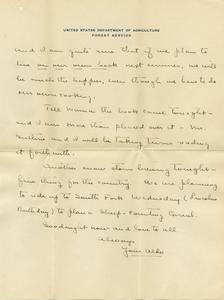 UNITED STATES DEPARTMENT OF AGRICULTURE
FOREST SERVICE
and I am quite sure that if we plan to
live on our own hook next summer, we will
be much the happier, even though we have to do
our own cooking.
Tell Minnie the book came tonight -
and I am more than pleased over it - Mr.
and I will be taking turns reading
it forthwith.
Another snow storm brewing tonight -
fine thing for this country. We are planning
to ride up to South Fork Wednesday (Lincolns
Birthday) to plan a sheep-counting Corral.
Goodnight now and love to all
Always
Your Aldo